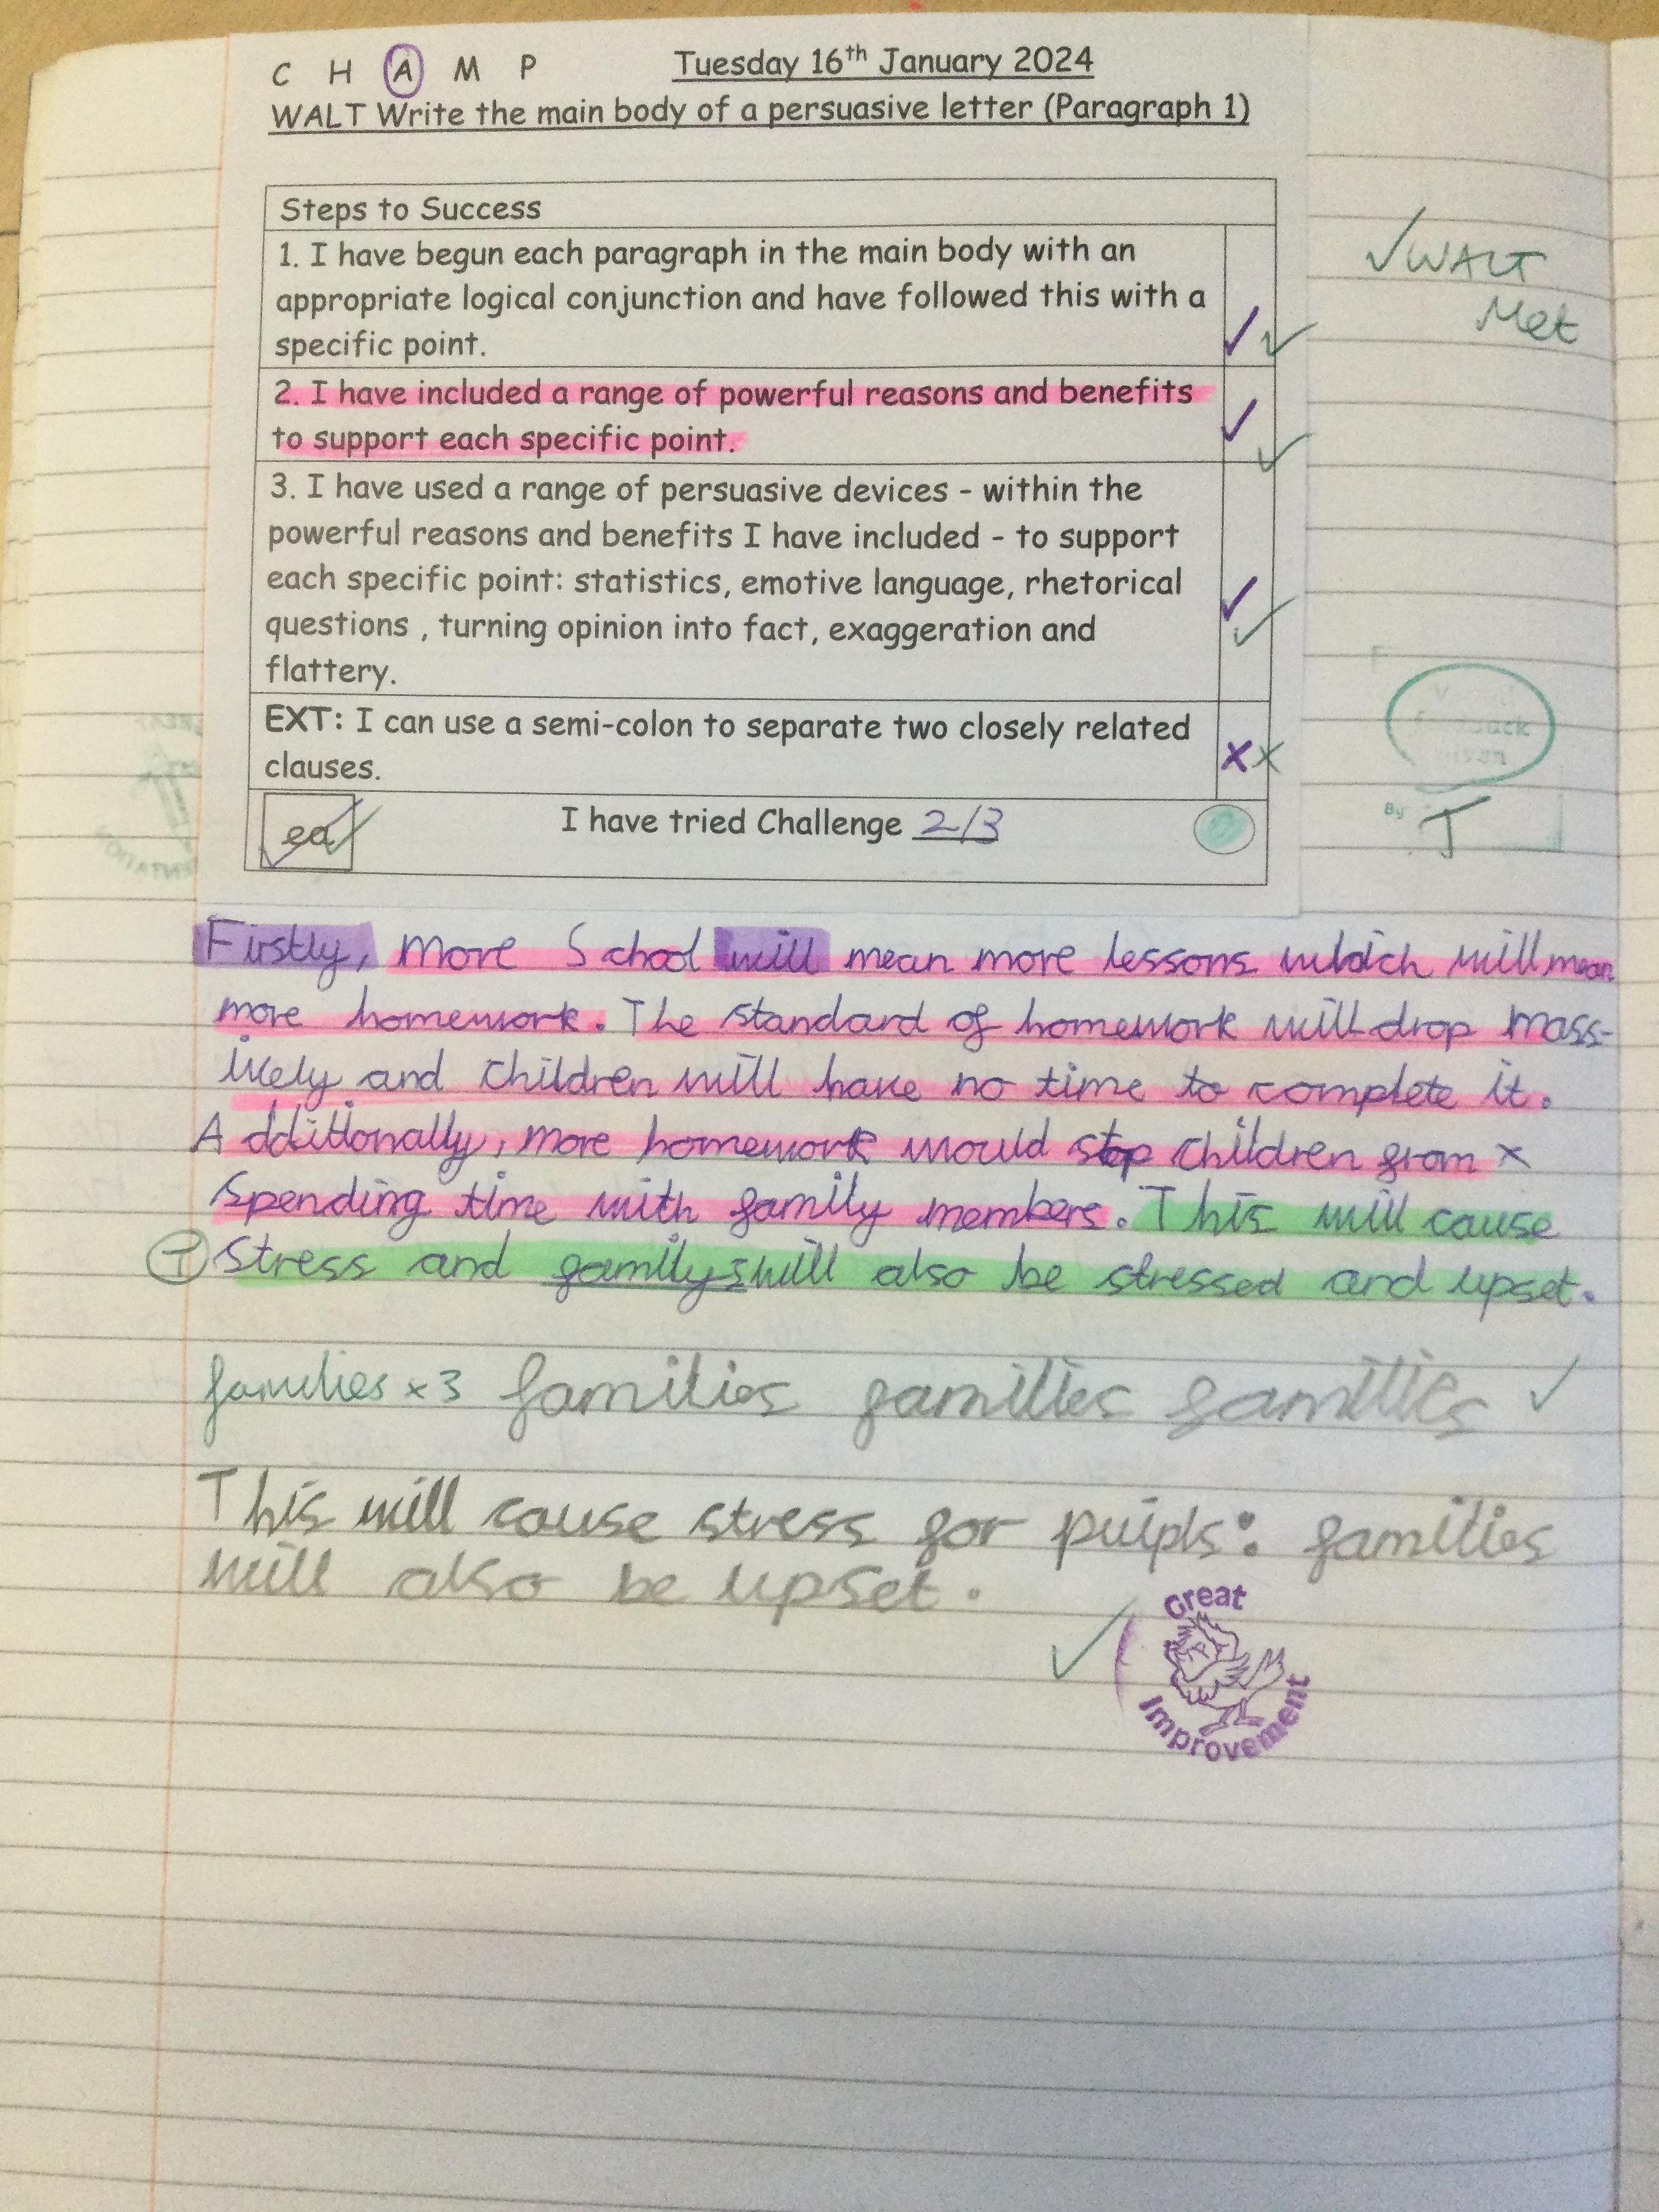 C H A M P Tuesday 16th January 2024
WALT Write the main body of a persuasive letter (Paragraph 1)
Steps to Success
1. I have begun each paragraph in the main body with an
appropriate logical conjunction and have followed this with a
specific point.
✓ WALT
Met
2. I have included a range of powerful reasons and benefits
to support each specific point.
3. I have used a range of persuasive devices - within the
powerful reasons and benefits I have included - to support
each specific point: statistics, emotive language, rhetorical
questions , turning opinion into fact, exaggeration and
flattery.
EXT: I can use a semi-colon to separate two closely related
clauses.
ea I have tried Challenge 2/3
By T
Firstly, more School will mean more lessons which will mean
more homework. The standard of homework will drop mass-
ively and children will have no time to complete it.
Additionally, more homework would stop children from x
spending time with family members. This will cause
T stress and familys will also be stressed and upset.
families x 3 families families families ✓
This will cause stress for puipls: families
will also be upset.
Great
Improvement